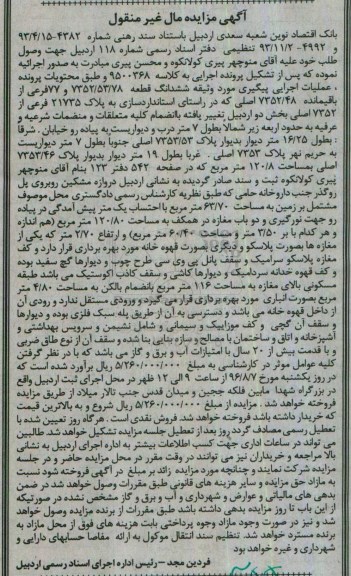 آگهی مزایده مال غیر منقول
بانک اقتصاد نوین شعبه سعدی اردبیل باستناد سند رهنی شماره ۴۳۸۲-۹۳/۴/۱۵
و ۴۹۹۲-۹۳/۱۱/۲ تنظیمی دفتر اسناد رسمی شماره ۱۱۸ اردبیل جهت وصول
طلب خود علیه آقای منوچهر پیری کولانکوه و محسن پیری مبادرت به صدور اجرائیه
نموده که پس از تشکیل پرونده اجرایی به کلاسه ۹۵۰۰۳۶۸ و طبق محتویات پرونده
، عملیات اجرایی پیگیری مورد وثیقه ششدانگ قطعه ۷۳۵۲/۵۳/۷۸ و ۷۷ فرعی از
باقیمانده ۷۳۵۲/۴۸ اصلی که در راستای استانداردسازی به پلاک ۲۱۷۳۵ فرعی از
۷۳۵۲ اصلی بخش دو اردبیل تغییر یافته بانضمام کلیه متعلقات و منضمات شرعیه و
عرفیه به حدود اربعه زیر شمالا بطول ۷ متر درب و دیواریست به پیاده رو خیابان . شرقا
: بطول ۱۶/۲۵ متر دیوار بدیوار پلاک ۷۳۵۳/۵۳ اصلی جنوبا بطول ۷ متر دیواریست
به حریم نهر پلاک ۷۳۵۳ اصلی . غربا بطول ۱۹ متر دیوار بدیوار پلاک ۷۳۵۳/۴۶
اصلی بمساحت ۱۲۰/۸ متر مربع که در صفحه ۵۴۲ دفتر ۱۲۳ بنام آقای منوچهر
پیری کولانکوه ثبت و سند صادر گردیده به نشانی اردبیل دروازه مشکین روبروی پل
روگذر جنب داروخانه حامی که طبق نظریه کارشناس رسمی دادگستری محل موصوف
مشتمل بر زمین به مساحت ۶۳/۷۰ متر مربع با احتساب یک متر پیش آمدگی در پیاده
رو جهت نورگیری و دو باب مغازه در همکف به مساحت ۱۲۰/۸۰ متر مربع (هم اندازه
و هر کدام با بر ۳/۵۰ متر و مساحت ۶۰/۴۰ متر مربع) و ارتفاع ۲/۷۰ متر که یکی از
مغازه ها بصورت پلاسکو و دیگری بصورت قهوه خانه مورد بهره برداری قرار دارد و کف
مغازه پلاسکو سرامیک و سقف پانل پی وی سی طرح چوب و دیوارها گچ سفید بوده
و کف قهوه خانه سرامیک و دیوارها کاشی و سقف کاذب آکوستیک می باشد طبقه
مسکونی بالای مغازه به مساحت ۱۱۶ متر مربع بانضمام بالکن به مساحت ۴/۸۰ متر
مربع بصورت انباری مورد بهره برداری قرار می گیرد و ورودی مستقل ندارد و رودی آن
از داخل قهوه خانه می باشد و دسترسی به آن از طریق پله سبک فلزی بوده و دیوارها
و سقف آن گچی و کف موزاییک و سیمانی و شامل نشیمن و سرویس بهداشتی و
آشپزخانه و اتاق و ساختمان با مصالح و سازه بنایی بنا شده و سقف آن از نوع طاق ضربی
و با قدمت بیش از ۲۰ سال با امتیازات آب و برق و گاز می باشد که با در نظر گرفتن
کلیه عوامل موثر در کارشناسی به مبلغ ۵/۲۶۰/۰۰۰/۰۰۰ ریال برآورد شده است که
در روز یکشنبه مورخ ۹۶/۸/۷ از ساعت ۹ الی ۱۲ ظهر در محل اجرای ثبت اردبیل واقع
در بزرگراه شهدا مابین فلکه ججین و میدان قدس جنب تالار میلاد از طریق مزایده
فروخته خواهد شد . مزایده از مبلغ ۵/۲۶۰/۰۰۰/۰۰۰ ریال شروع و به بالاترین قیمت
که خریدار داشته باشد فروخته خواهد شد. فروش نقدی است . هر گاه روز تعیین شده با
تعطیل رسمی مصادف گردد روز بعد از تعطیل جلسه مزایده تشکیل خواهد شد. طالبین
می تواند در ساعات اداری جهت کسب اطلاعات بیشتر به اداره اجرای اردبیل به نشانی
بالا مراجعه و خریداران نیز می توانند در وقت مقرر در محل مزایده حاضر و در جلسه
مزایده شرکت نمایند و چنانچه مورد مزایده زائد بر مبلغ در آگهی فروخته شود نسبت
به مازاد حق مزایده و سایر هزینه های قانونی طبق مقررات وصول خواهد شد در ضمن
بدهی های مالیاتی و عوارض و شهرداری و آب و برق و گاز مشخص نشده در صورتیکه
از این باب تا روز مزایده بدهی داشته باشد طبق مقررات از برنده مزایده وصول خواهد
شد و نیز در صورت وجود مازاد وجوه پرداختی بابت هزینه های فوق از محل مازاد به
برنده مسترد خواهد شد. تنظیم سند انتقال موکول به ارائه مفاصا حسابهای دارایی و
شهرداری و غیره خواهد بود
فردین مجد – رئیس اداره اجرای اسناد رسمی اردبیل